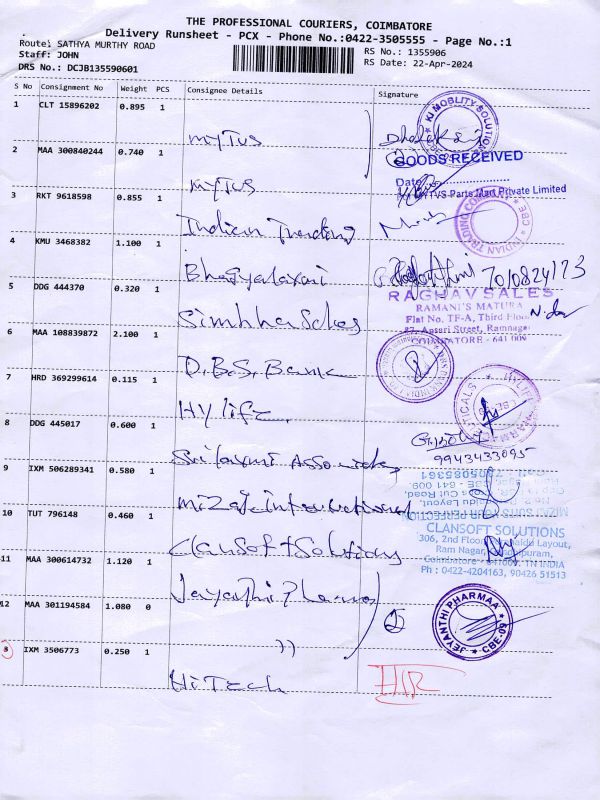 THE PROFESSIONAL COURIERS, COIMBATORE
Delivery Runsheet - PCX - Phone No.:0422-3505555 - Page No.:1
Route: SATHYA MURTHY ROAD
RS No.: 1355906
Staff: JOHN
RS Date: 22-Apr-2024
DRS No.: DCJB135590601
S No Consignment No Weight PCS Consignee Details Signature
1 CLT 15896202 0.895 1
myTVS
KI MOBLITY SOLUTIONS
2 MAA 300840244 0.740 1
myTVS
GOODS RECEIVED
Date
TVS Parts Mart Private Limited
3 RKT 9618598 0.855 1
Indian Trading
INDIAN TRADING COMPANY CBE
4 KMU 3468382 1.100 1
Bhagyalaxmi
5 DDG 444370 0.320 1
Simhha Sales
RAGHAV SALES
RAMANI'S MATURA
Flat No. TF-A, Third Floor
Ansari Street, Ramnagar
COIMBATORE - 641 009
6 MAA 108839872 2.100 1
D.B.S. Bank
7 HRD 369299614 0.115 1
Hylife
8 DDG 445017 0.600 1
Sri laxmi Associates
9943433095
9 IXM 506289341 0.580 1
Mizaj International
10 TUT 796148 0.460 1
Clansoft Solutions
CLANSOFT SOLUTIONS
306, 2nd Floor, Layout,
Ram Nagar,
Coimbatore - 641009. TN INDIA
Ph : 0422-4204163, 90426 51513
11 MAA 300614732 1.120 1
Jeyanthi Pharma
12 MAA 301194584 1.080 0
))
JEYANTHI PHARMAA CBE-09
IXM 3506773 0.250 1
Hi Tech